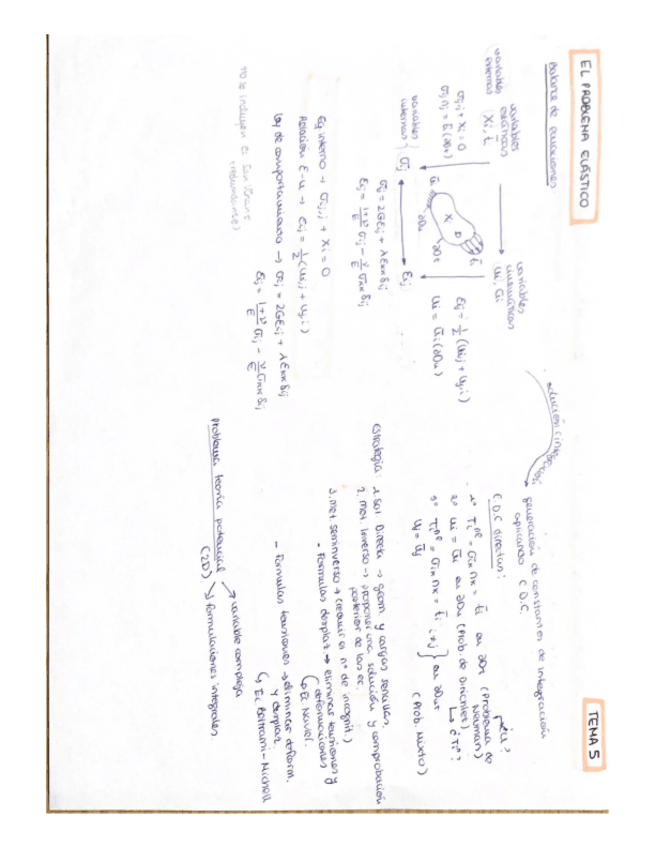 EL PROBLEMA ELÁSTICO
TEMA 5
Balance de ecuaciones
variables externas
variables estáticas
(Xi, t̄i
variables cinemáticas
(ui, ūi
σij,j + Xi = 0
σij nj = t̄i (∂Dt)
Xi D
t̄i
ūi
∂Du
∂Dt
εij = 1/2 (ui,j + uj,i)
ui = ūi (∂Du)
variables internas { σij
εij
σij = 2Gεij + λεkk δij
εij = 1+ν/E σij - ν/E σkk δij
Eq interno → σij,j + Xi = 0
Relación ε-u → εij = 1/2 (ui,j + uj,i)
Ley de comportamiento → σij = 2Gεij + λεkk δij
εij = 1+ν/E σij - ν/E σkk δij
no se incluyen
(redundante)
generación de constantes de integración
aplicando C.D.C.
C.D.C directas:
1º Ti = σik nk = t̄i en ∂Dt (Problema de Neuman)
2º ui = ūi en ∂Du (Prob. de Dirichlet)
3º Ti = σik nk = t̄i i≠j } en ∂Dut
uj = ūj
(Prob. Mixto)
Estrategia: 1. Sol Directa → geom. y cargas sencillas.
2. Met. Inverso → proponer una solución y comprobación
posterior de las ec.
3. Met seminverso → (reducir el nº de incognit.)
- Formulas desplaz. → eliminar tensiones y
deformaciones
↳ Ec Navier.
- Formulas tensiones → eliminar deform.
y desplaz.
↳ Ec Beltrami-Michell
Problema teoría potencial
(2D)
↗ variable compleja
↘ formulaciones integrales